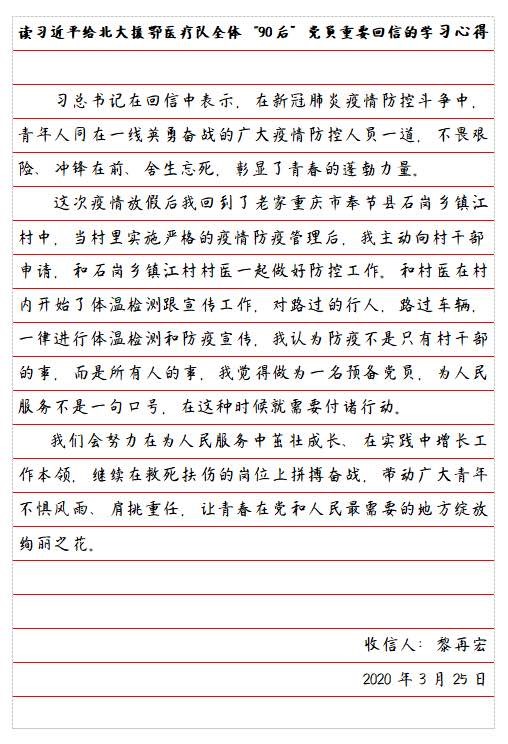 读习近平给北大援鄂医疗队全体“90后”党员重要回信的学习心得
习总书记在回信中表示，在新冠肺炎疫情防控斗争中，
青年人同在一线英勇奋战的广大疫情防控人员一道，不畏艰
险、冲锋在前、舍生忘死，彰显了青春的蓬勃力量。
这次疫情放假后我回到了老家重庆市奉节县石岗乡镇江
村中，当村里实施严格的疫情防疫管理后，我主动向村干部
申请，和石岗乡镇江村村医一起做好防控工作。和村医在村
内开始了体温检测跟宣传工作，对路过的行人，路过车辆，
一律进行体温检测和防疫宣传，我认为防疫不是只有村干部
的事，而是所有人的事，我觉得做为一名预备党员，为人民
服务不是一句口号，在这种时候就需要付诸行动。
我们会努力在为人民服务中茁壮成长、在实践中增长工
作本领，继续在救死扶伤的岗位上拼搏奋战，带动广大青年
不惧风雨、肩挑重任，让青春在党和人民最需要的地方绽放
绚丽之花。
收信人：黎再宏
2020年3月25日